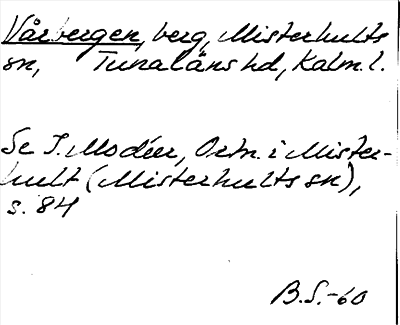 Vårbergen, berg, Misterhults
sn, Tunaläns hd, Kalm. l.
Se I. Modéer, Ortn. i Mister-
hult (Misterhults sn),
s. 84
B.S.-60